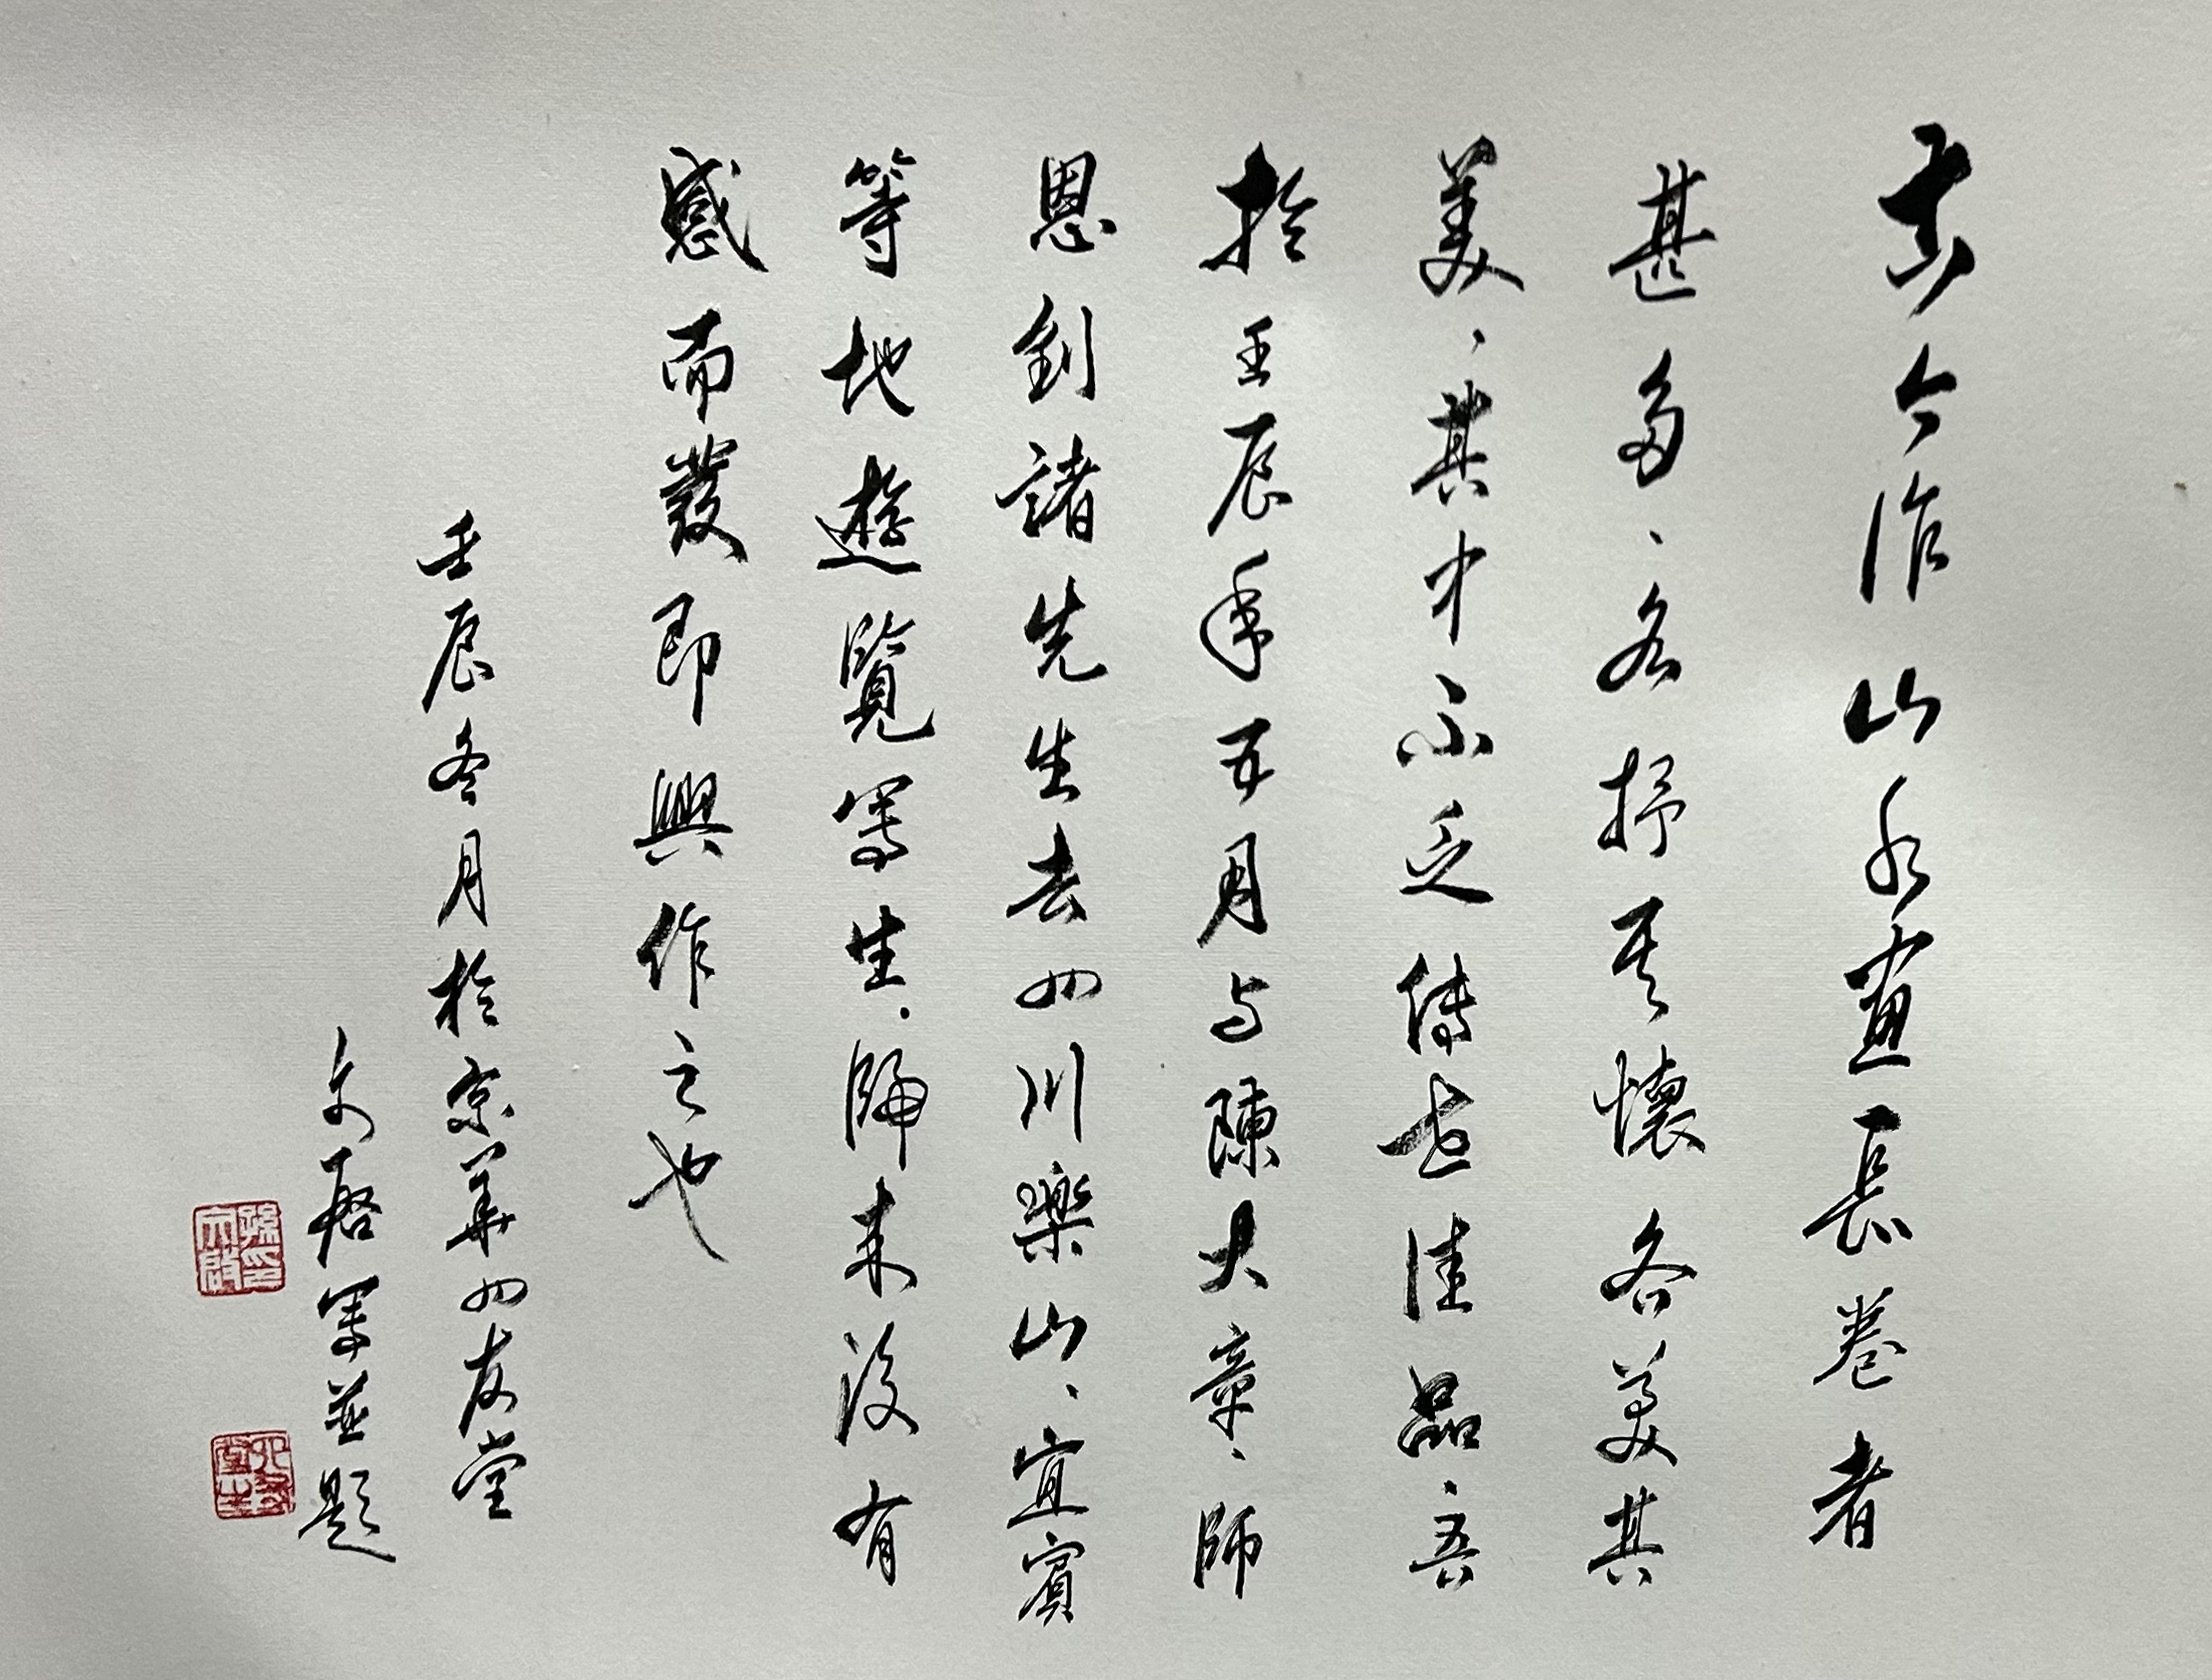 古今作山水畫長卷者
甚多、各抒其懷各美其
美、其中不乏傳世佳品、吾
於壬辰年五月与陳大章、師
恩釗諸先生去四川樂山、宜賓
等地遊覽寫生、歸来後有
感而發即興作之也
壬辰冬月於京華四友堂
文啓寫並題
孫文啟印
四友堂主